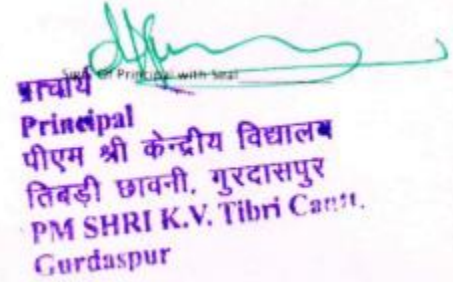 Sign. Of Principal with Seal
प्राचार्य
Principal
पीएम श्री केन्द्रीय विद्यालय
तिबड़ी छावनी, गुरदासपुर
PM SHRI K.V. Tibri Cantt.
Gurdaspur